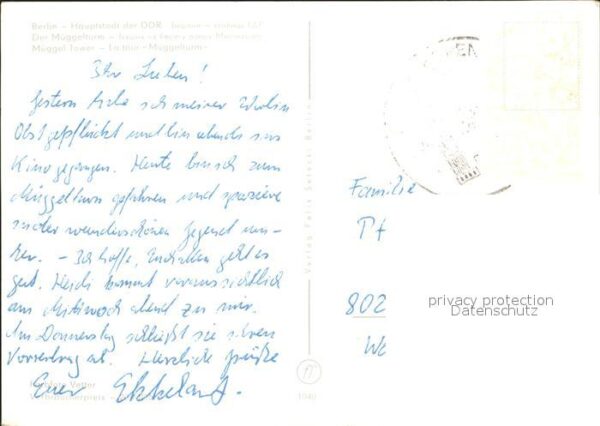 Berlin – Hauptstadt der DDR
Der Müggelturm –
Müggel Tower – La tour «Müggelturm»
Ihr Lieben!
Gestern habe ich meiner Wirtin
Obst gepflückt und bin abends ins
Kino gegangen. Heute bin ich zum
Müggelturm gefahren und spaziere
in der wunderschönen Gegend um-
her. – Ich hoffe, Euch allen geht es
gut. Heidi kommt voraussichtlich
am Mittwoch abend zu mir.
Am Donnerstag schließt sie ihren
Vorvertrag ab. Herzliche Grüße
Euer Ekkehard.
Vetter
Verbraucherpreis
Verlag Felix Setecki, Berlin
Familie
Pf
802
We
privacy protection
Datenschutz